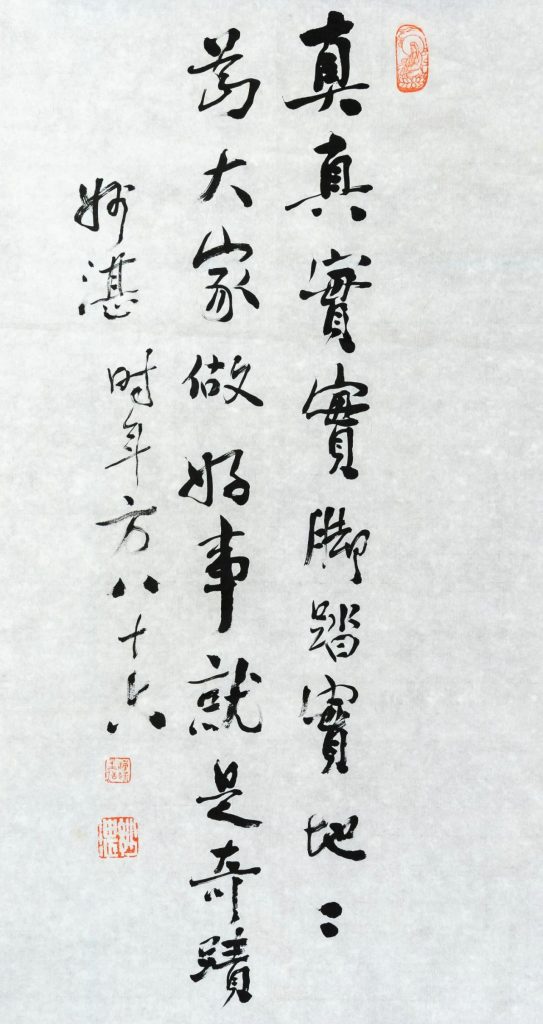 真真實實脚踏實地〻
為大家做好事就是奇蹟
妙湛 时年方八十六